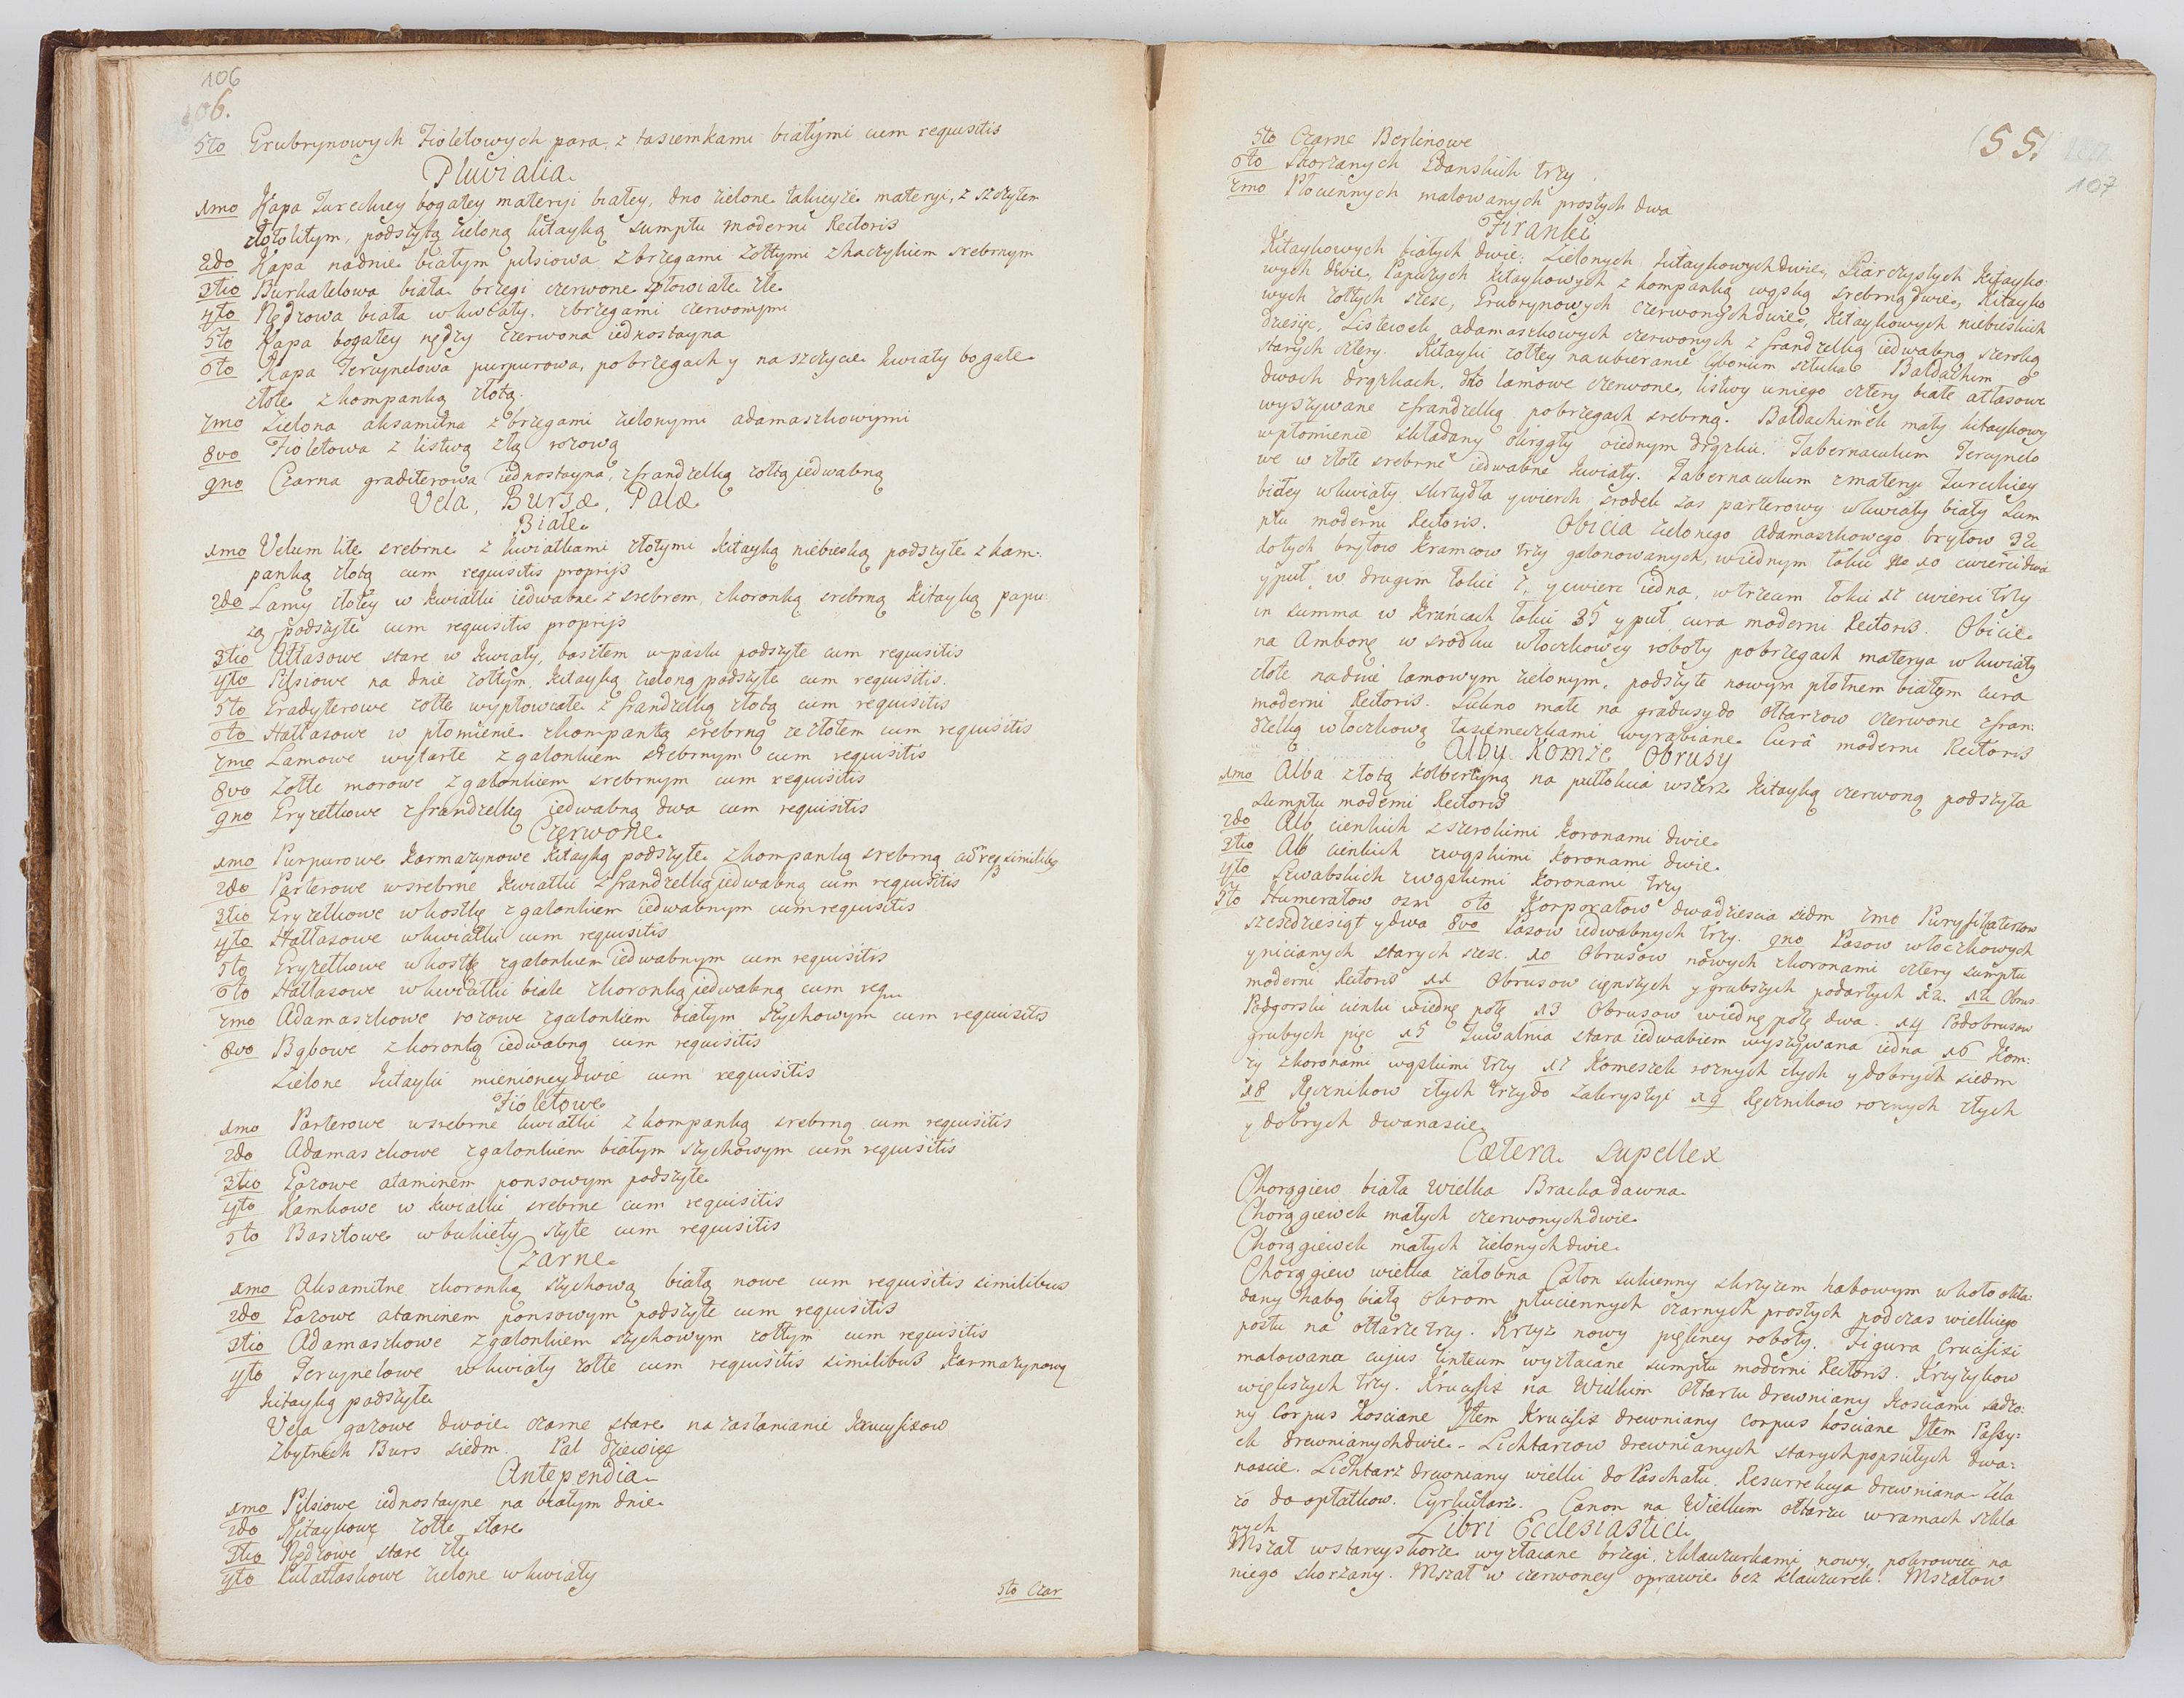 106
106.
5to Grubrynowych Fioletowych para, z tasiemkami białymi cum requisitis
Pluvialia.
1mo Kapa Tureckiey bogatey materyi białey, dno zielone takieyże materyi, z szczytem
złotolitym, podszyta zieloną kitayką sumptu moderni Rectoris
2do Kapa nadnie białym pilsiowa z brzegami żołtymi zhaczykiem srebrnym
3tio Burkatelowa biała brzegi czerwone spłowiałe złe
4to Nędzowa biała wkwiaty, zbrzegami czerwonymi
5to Kapa bogatey nędzy czerwona iednostayna
6to Kapa Tercynelowa purpurowa, pobrzegach y na szczycie kwiaty bogate
złote zkompanką złotą.
7mo Zielona aksamitna z brzegami zielonymi adamaszkowymi
8vo Fioletowa z listwą złą rozową
9no Czarna graditerowa iednostayna, zfrandzelką zołtą iedwabną
Vela, Bursæ, Palæ
Białe
1mo Velum lite srebrne z kwiatkami złotymi kitayką niebieską podszyte z kam:
panką złotą cum requisitis proprijs
2do Lamy złotey w kwiatki iedwabne z srebrem, zkoronką srebrną kitayką papu:
zą podszyte cum requisitis proprijs
3tio Atłasowe stare w kwiaty, basztem wpaski podszyte cum requisitis
4to Pilsiowe na dnie żołtym, kitayką zieloną podszyte cum requisitis.
5to Gradyterowe zołte wypłowiałe z frandzelką złotą cum requisitis
6to Hatłasowe w płomienie zkompanką srebrną ze złotem cum requisitis
7mo Lamowe wytarte z galonkiem srebrnym cum requisitis
8vo Zołte morowe z galonkiem srebrnym cum requisitis
9no Gryzetkowe zfrandzelką iedwabną dwa cum requisitis
Czerwone.
1mo Purpurowe Karmazynowe kitayką podszyte zkompanką srebrną
2do Parterowe wsrebrne kwiatki zfrandzelką iedwabną cum requisitis
3tio Gryzetkowe wkostkę zgalonkiem iedwabnym cum requisitis
4to Hatłasowe wkwiatki cum requisitis
5to Gryzetkowe wkostkę zgalonkiem iedwabnym cum requisitis
6to Hatłasowe wkwiatki białe zkoronką iedwabną cum req
7mo Adamaszkowe rozowe zgalonkiem białym szychowym cum requisitis
8vo Bąbowe zkoronką iedwabną cum requisitis
Zielone kitayki mienioney dwie cum requisitis
Fioletowe
1mo Parterowe wsrebrne kwiatki z kompanką srebrną cum requisitis
2do Adamaszkowe zgalonkiem białym szychowym cum requisitis
3tio Gazowe ataminem ponsowym podszyte
4to Kamkowe w kwiatki srebrne cum requisitis
5to Basztowe wbukiety szyte cum requisitis
Czarne.
1mo Aksamitne zkoronką szychową białą nowe cum requisitis similibus
2do Gazowe ataminem ponsowym podszyte cum requisitis
3tio Adamaszkowe zgalonkiem szychowym żołtym cum requisitis
4to Tercynelowe wkwiaty zołte cum requisitis similibus Karmazynową
kitayką podszyte
Vela gazowe dwoie czarne stare na zasłanianie Krucyfixow
Zbytnich Burs siedm. Pal dziewięć
Antependia.
1mo Pilsiowe iednostayne na białym dnie.
2do Kitaykowe zołte stare
3tio Nędzowe stare złe
4to Kutattaskowe zielone wkwiaty
5to Czar
(55)
107
5to Czarne Berlinowe
6to Skorzanych Gdanskich trzy
7mo Płociennych malowanych prostych dwa
Firanki
Kitaykowych białych dwie, Zielonych kitaykowych dwie, Siarczystych kitayko:
wych dwie, Papuzych kitaykowych z kompanką wąską srebrną dwie, Kitayko
wych zołtych szesc, Grubrynowych czerwonych dwie, kitaykowych niebieskich
dziesięc, Listewek adamaszkowych czerwonych z frandzelką iedwabną szeroką
starych cztery. Kitayki zołtey na ubieranie Cyborium sztuka Baldachim o
dwoch drązkach, dno lamowe czerwone, listwy uniego cztery białe atłasowe
wyszywane zfrandzelką pobrzegach srebrną. Baldachimek mały kitaykowy
wpłomienie składany okrągły oiednym drązku. Tabernaculum Tercynelo
we w złote srebrne iedwabne kwiaty. Tabernaculum zmateryi Tureckiey
białey wkwiaty skrzydła ywierch srodek zas parterowy wkwiaty biały Sum
ptu moderni Rectoris. Obicia zielonego Adamaszkowego brytow 32
dotych brytow Kramcow trzy galonowanych, wiednym łokci 10 cwierci dwie
ypuł w drugim łokci 7, ycwierc iedna, wtrzecim łokci 17 cwierci trzy
in summa w Krańcach łokci 35 ypuł cura moderni Rectoris. Obicie
na Ambonę w srodku włoczkowey roboty pobrzegach materya wkwiaty
złote nadnie lamowym zielonym, podszyte nowym płotnem białym cura
moderni Rectoris. Sukno małe na gradusy do ołtarzow czerwone zfran:
dzelką włoczkową tasiemeczkami wyrabiane Curâ moderni Rectoris
Alby Komże Obrusy
1mo Alba złotą kolbertyną na pułłokcia wszerz kitayką czerwoną podszyta
Sumptu moderni Rectoris
2do Alb cienkich zszerokimi koronami dwie
3tio Alb cienkich zwąskimi koronami dwie.
4to Szwabskich zwąskimi koronami trzy
5to Humerałow osm 6to Korporałow dwadziescia siedm 7mo Puryfikaterzow
szescdziesiąt y dwa 8vo Pasow iedwabnych trzy. 9no Pasow włoczkowych
ynicianych starych szesc. 10 Obrusow nowych zkoronami cztery sumptu
moderni Rectoris 11 Obrusow cięnszych y grubszych podartych 12. 12 Obrus
Podgorski cienki wiednę połę 13 Obrusow wiednę połę dwa. 14 Podobrusow
grubych pięc 15 Tuwalnia stara iedwabiem wyszywana iedna 16 Kom:
ży zkoronami wąskimi trzy 17 Komeszek roznych złych ydobrych siedm
18 Ręcznikow złych trzy do Zakrystyi 19 Ręcznikow roznych złych
y dobrych dwanascie.
Cætera Supellex
Chorągiew biała wielka Bracka dawna.
Chorągiewek małych czerwonych dwie
Chorągiewek małych zielonych dwie.
Chorągiew wielka załobna Całon sukienny skrzyzem habowym wkoło okła:
dany habą białą okrom płuciennych czarnych prostych podczas wielkiego
postu na ołtarze trzy. Krzyz nowy piękney roboty. Figura Crucifixi
malowana cujus linteum wyzłacane sumptu moderni Rectoris. Krzyzykow
większych trzy. Krucyfix na Wielkim Ołtarzu drewniany kosciami sadzo:
ny Corpus Kosciane Item Krucifix drewniany corpus kosciane Item Passy:
ek drewnianych dwie. Lichtarzow drewnianych starych popsutych dwa:
nascie. Lichtarz drewniany wielki do Paschału. Resurrekcya drewniana. Zela
zo do opłatkow. Cyrkularz. Canon na Wielkim ołtarzu wramach szkla
nych Libri Ecclesiastici
Mszał wstareyskorze wyzłacane brzegi, zklauzurkami nowy, pokrowiec na
niego skorzany. Mszał w czerwoney oprawie bez klauzurek. Mszałow